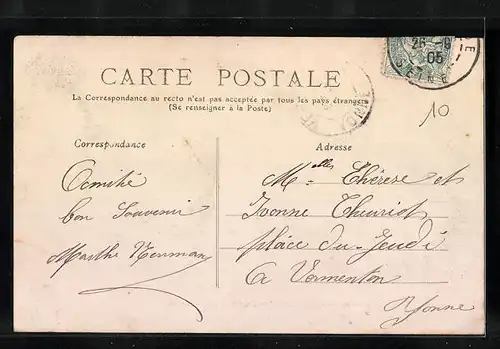 26 -6
05
SEINE
CARTE POSTALE
La Correspondance au recto n'est pas acceptée par tous les pays étrangers
(Se renseigner à la Poste)
10
Correspondance
Amitié
bon Souvenir
Marthe Neuman
Adresse
Melles Thérèse et
Yvonne Theuriot
place du Jeudi
a Vermenton
Yonne